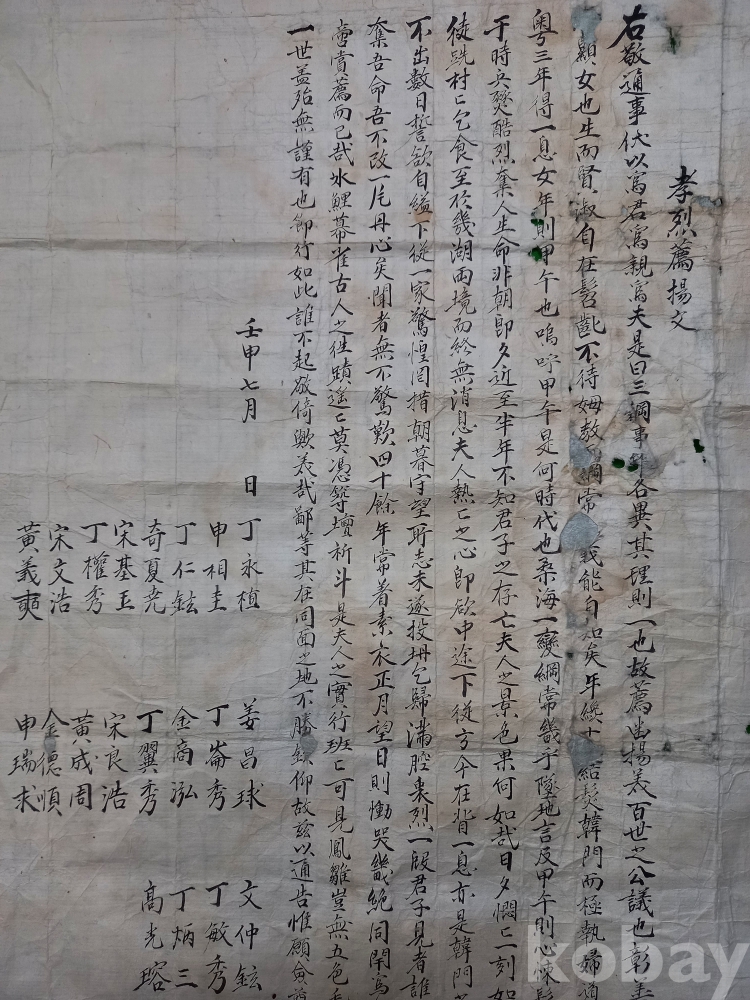 孝烈薦揚文
右敬通事伏以爲君爲親爲夫是曰三綱事 各異其理則一也故薦出揚義百世之公議也彰
顯女也生而賢淑自在髫齔不待姆敎 綱常 義能自知矣年纔十 結髮韓門而極執婦
粤三年得一息女年則甲午也嗚呼甲午是何時代也桑海一變綱常幾乎墜地言及甲午則心悚
于時兵燹酷烈棄人生命非朝卽夕近至半年不知君子之存亡夫人之景色果何如哉日夕憫〻一刻如
徒跣村〻乞食至於幾湖兩境而終無消息夫人熱〻之心卽欲中途下從方今在背一息亦是韓門
不出數日誓欲自縊下從一家驚惶罔措朝暮守望所志未遂投 乞歸滿腔哀烈一段君子見者誰
奪吾命吾不改一片丹心矣聞者無不驚歎四十餘年常着素衣正月望日則慟哭幾絶同閈
賞薦而已哉氷鯉幕雀古人之往蹟遙〻莫憑築壇祈斗是夫人之實行班〻可見鳳雛豈無五色
一世盖殆無謹有也節行如此誰不起敬倚歟美哉鄙等其在同面之地不勝欽仰故玆以通告惟願僉
壬申七月 日
丁永植 姜昌球 文仲鉉
申相圭 丁崙秀 丁敏秀
丁仁鉉 金商泓 丁炳三
奇夏堯 丁翼秀 高光瑢
宋基玉 宋良浩
丁權秀 黃成周
宋文浩 金德順
黃義奭 申瑞求
kobay